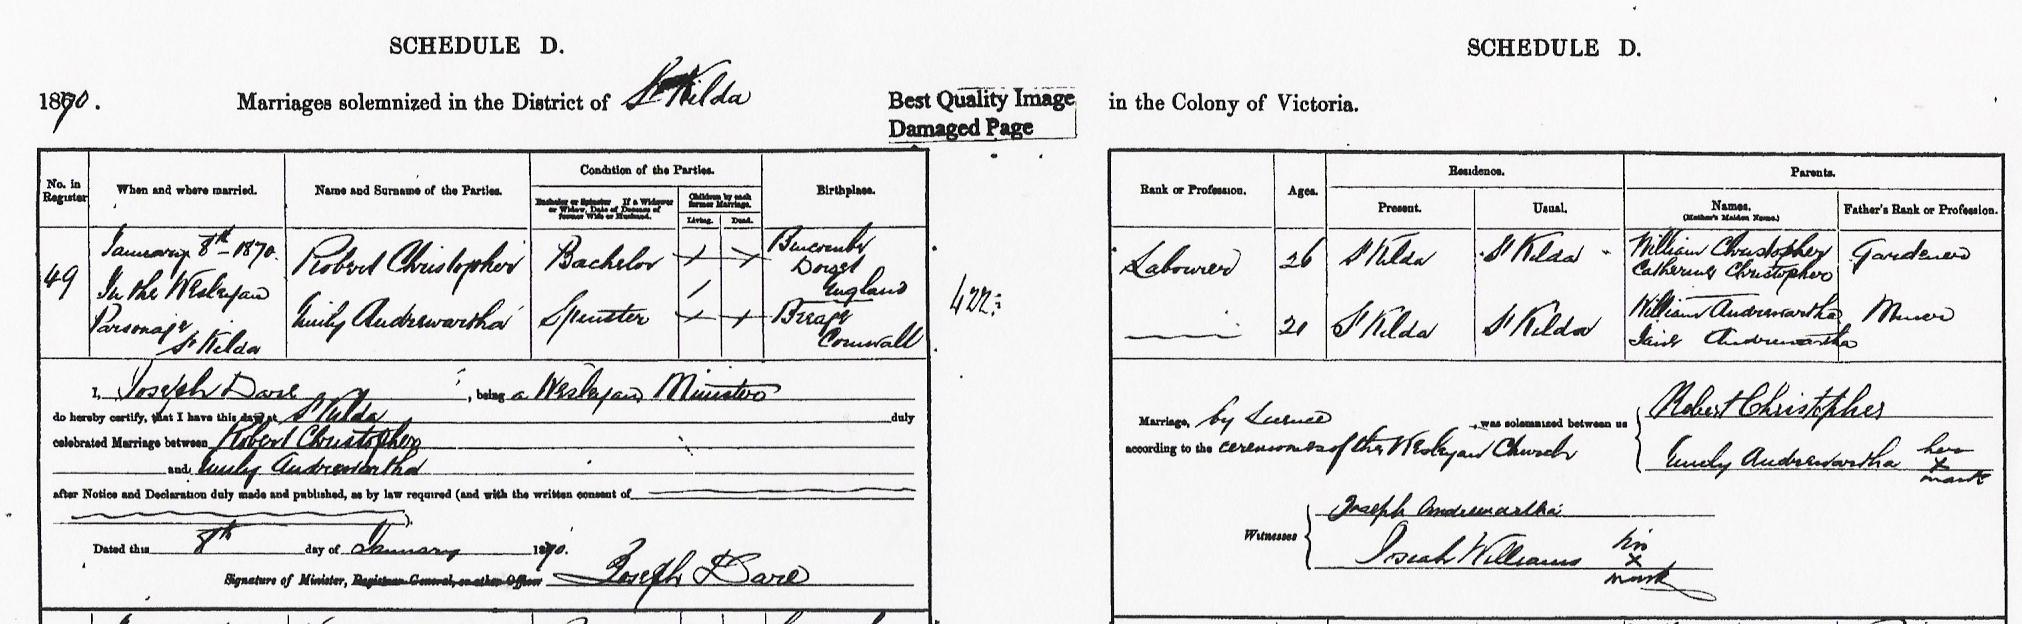 SCHEDULE D.
1870. Marriages solemnized in the District of St Kilda
Best Quality Image
Damaged Page
No. in Register
When and where married.
Name and Surname of the Parties.
Condition of the Parties.
Bachelor or Spinster If a Widower or Widow, Date of Decease of former Wife or Husband.
Children by each former Marriage.
Living. Dead.
Birthplace.
49
January 8th 1870.
In the Wesleyan
Parsonage
St Kilda
Robert Christopher
Bachelor
Bincombe
Dorset
England
Emily Andrewartha
Spinster
Breage
Cornwall
422
I, Joseph Dare, being a Wesleyan Minister
do hereby certify, that I have this day at St Kilda duly
celebrated Marriage between Robert Christopher
and Emily Andrewartha
after Notice and Declaration duly made and published, as by law required (and with the written consent of
Dated this 8th day of January 1870.
Signature of Minister, Registrar-General, or other Officer Joseph Dare
SCHEDULE D.
in the Colony of Victoria.
Rank or Profession.
Ages.
Residence.
Present. Usual.
Parents.
Names.
(Mother's Maiden Name.)
Father's Rank or Profession.
Labourer 26 St Kilda St Kilda William Christopher Gardener
Catherine Christopher
21 St Kilda St Kilda William Andrewartha Miner
Jane Andrewartha
Marriage, by License was solemnized between us Robert Christopher
according to the ceremonies of the Wesleyan Church
Emily Andrewartha her
x
mark
Witnesses
Joseph Andrewartha
Josiah Williams his
x
mark